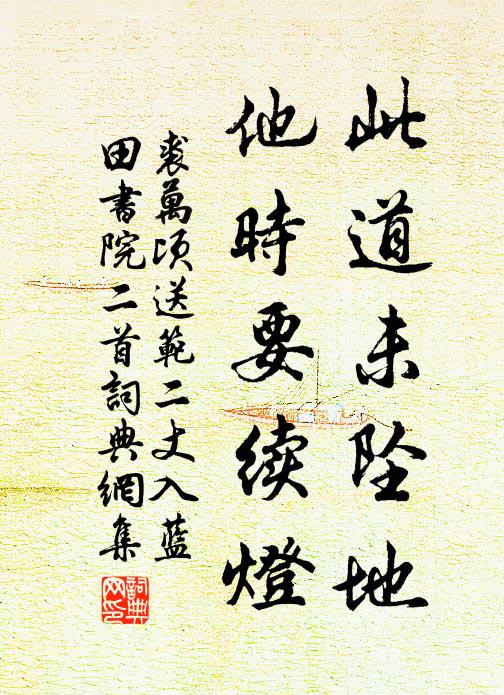 此道未坠地
他時要續燈
裘萬頃送範二丈入藍
田書院二首詞典網集
詞典
网印